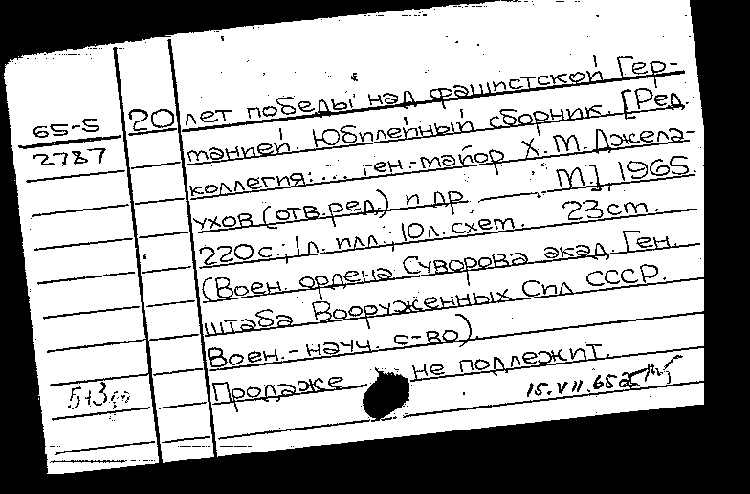 65-5 20 лет победы над фашистской Гер-
2787 манией. Юбилейный сборник. [Ред.
коллегия:... ген.-майор Х.М. Джела-
ухов (отв.ред.) и др. М.], 1965.
220 с.; 1 л. илл.; 10 л. схем. 23 см.
(Воен. ордена Суворова акад. Ген.
штаба Вооруженных Сил СССР.
Воен.-науч. о-во).
Продаже не подлежит.
15.VII.65